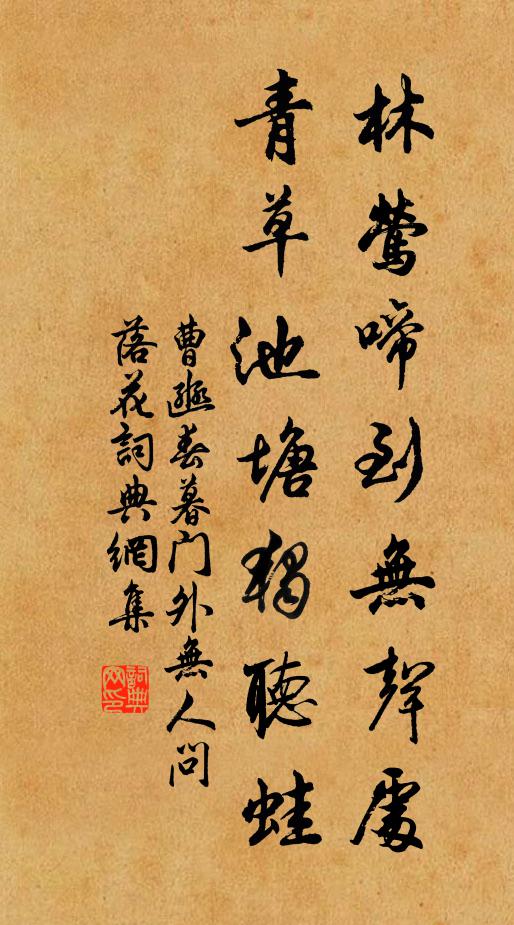 林鶯啼到無聲處
青草池塘獨聽蛙
曹豳春暮門外無人問
落花詞典網集
詞典
网印